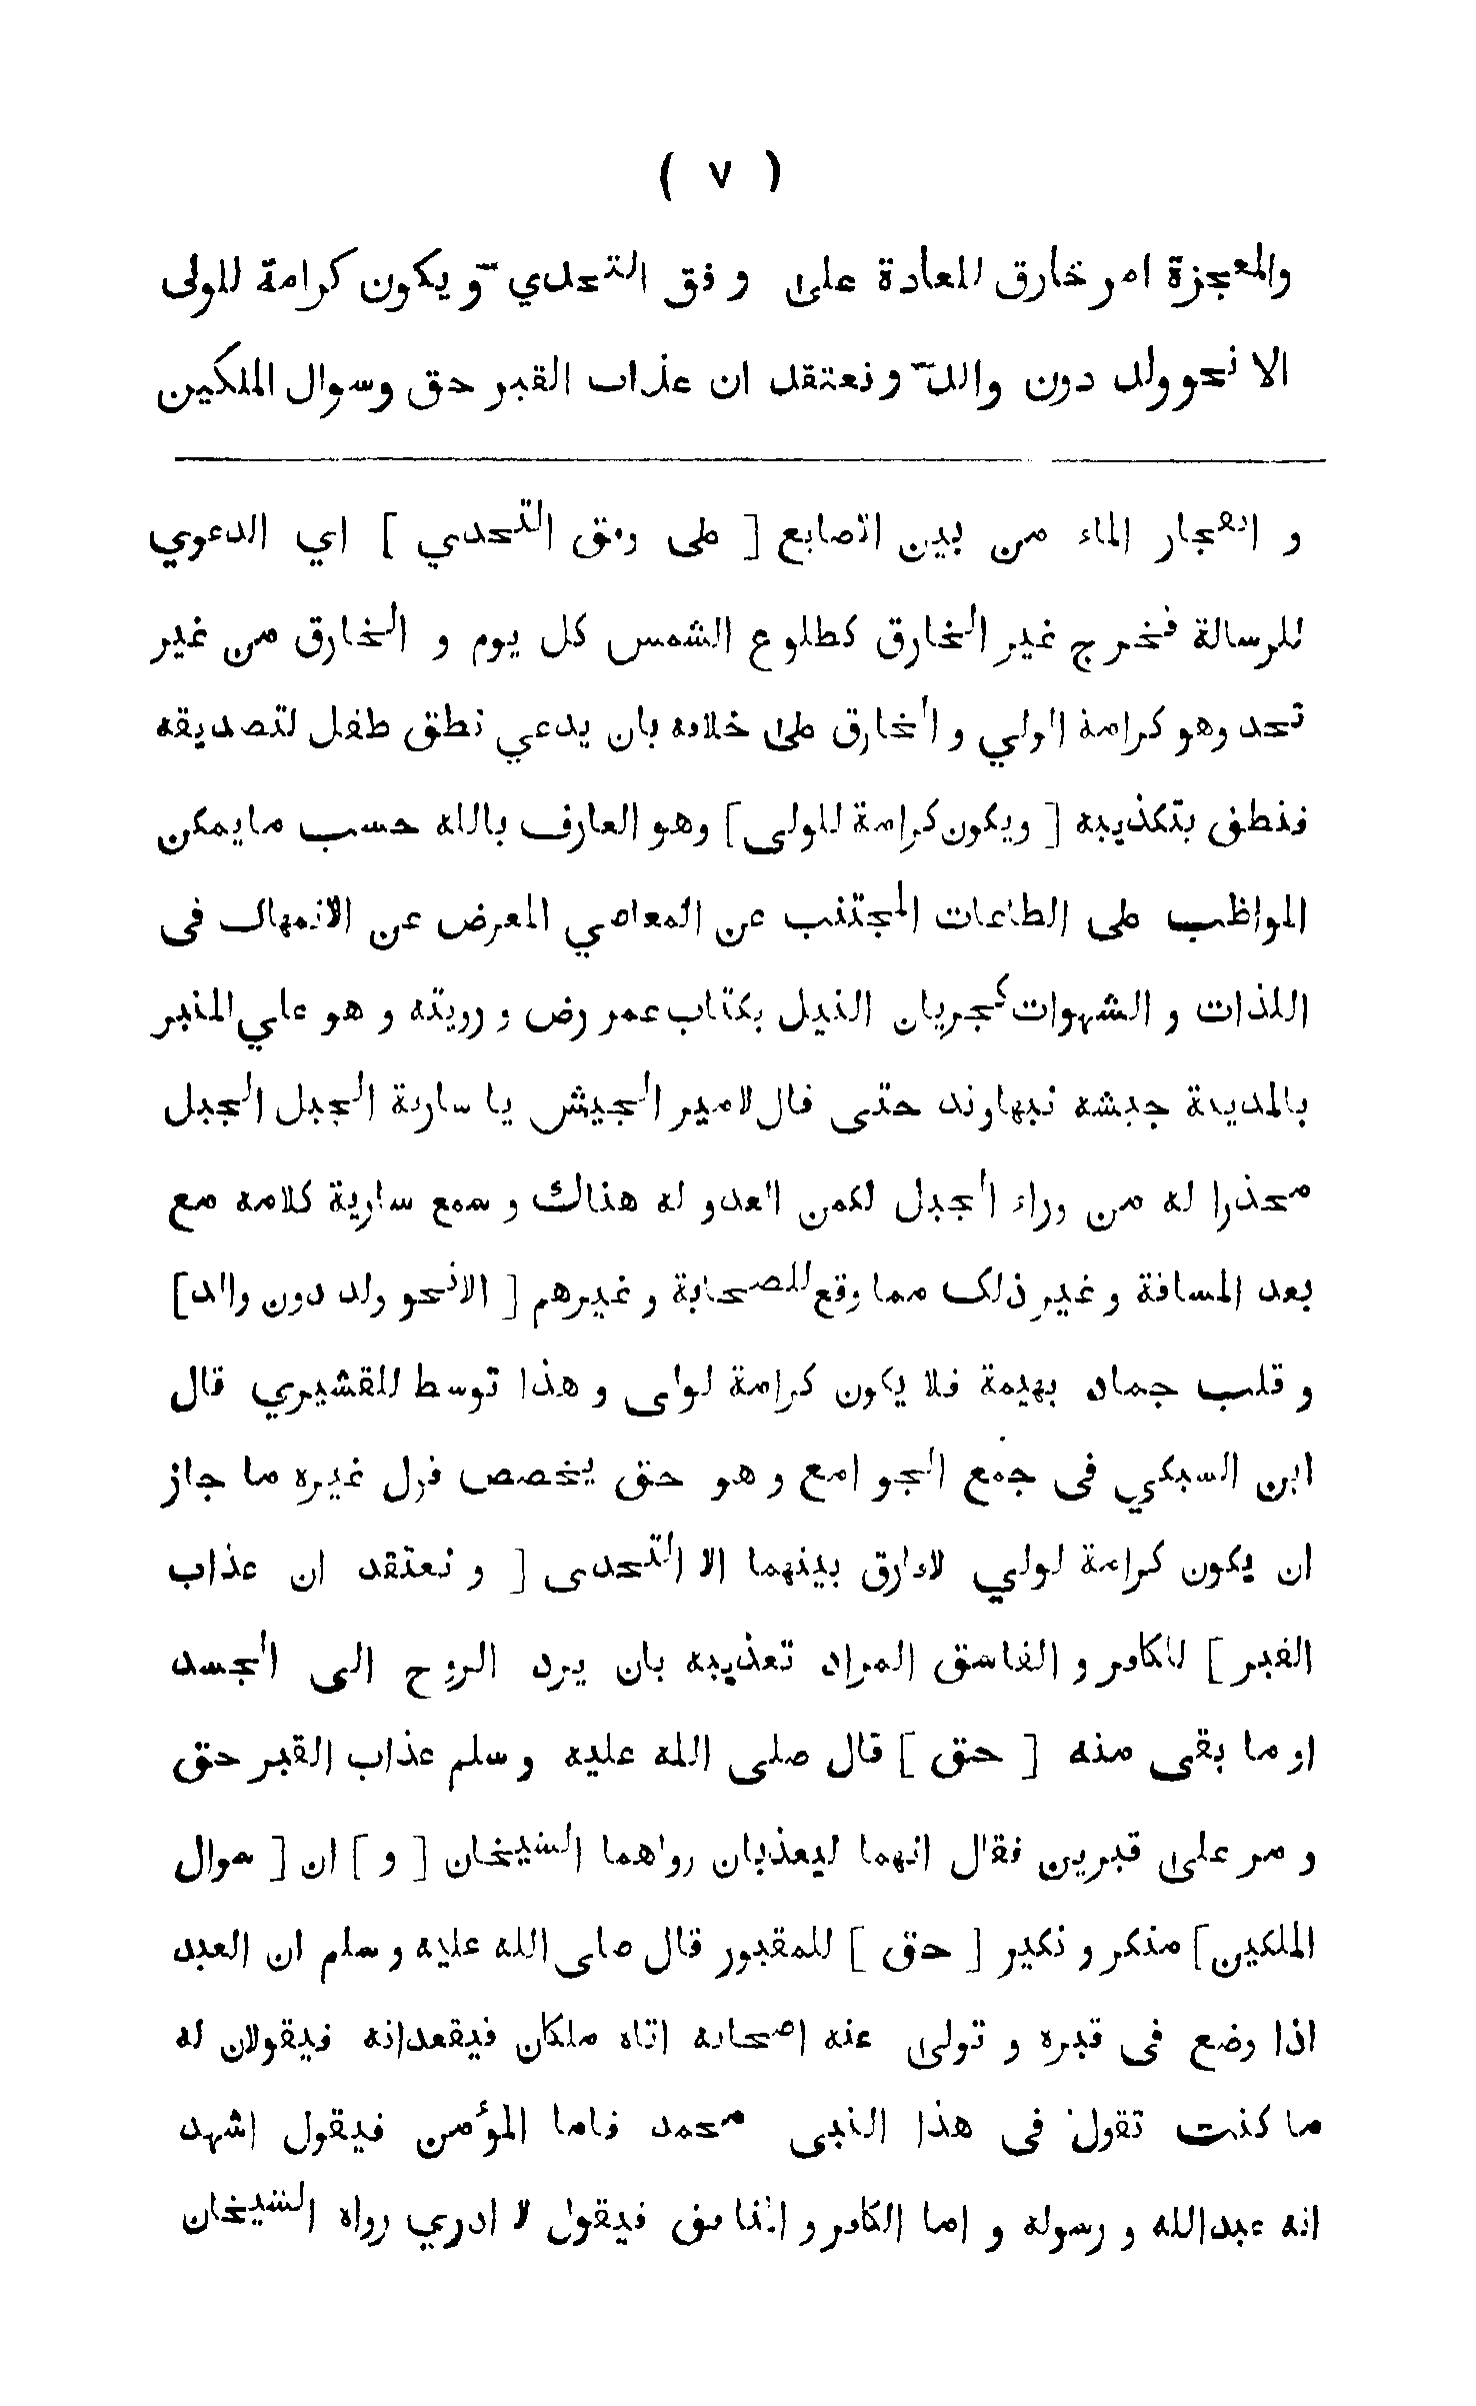 ( ٧ )
والمعجزة امر خارق للعادة على وفق التحدي ويكون كرامة للولى
الا نحو ولد دون والد ونعتقد ان عذاب القبر حق وسوال الملكين
و انفجار الماء من بين اصابع [ على وفق التحدي ] اي الدعوي
للرسالة فخرج غير الخارق كطلوع الشمس كل يوم و الخارق من غير
تحد وهو كرامة الولي و الخارق على خلافه بان يدعي نطق طفل لتصديقه
فنطق بتكذيبه [ ويكون كرامة للولى ] وهو العارف بالله حسب ما يمكن
المواظب على الطاعات المجتنب عن المعاصي المعرض عن الانهماك فى
اللذات و الشهوات كجريان النيل بكتاب عمر رض و رويته و هو علي المنبر
بالمدينة جيشه نبهاوند حتى قال لامير الجيش يا سارية الجبل الجبل
محذرا له من وراء الجبل لكمن العدو له هناك و سمع سارية كلامه مع
بعد المسافة و غير ذلك مما وقع للصحابة و غيرهم [ الانحو ولد دون والد ]
و قلب جماد بهيمة فلا يكون كرامة لولى و هذا توسط للقشيري قال
ابن السبكي فى جمع الجوامع و هو حق يخصص قول غيره ما جاز
ان يكون كرامة لولي لافارق بينهما الا التحدى [ و نعتقد ان عذاب
القبر ] للكافر و الفاسق المراد تعذيبه بان يرد الروح الى الجسد
او ما بقى منه [ حق ] قال صلى الله عليه و سلم عذاب القبر حق
و مر على قبرين فقال انهما ليعذبان رواهما الشيخان [ و ] ان [ سوال
الملكين ] منكر و نكير [ حق ] للمقبور قال صلى الله عليه و سلم ان العبد
اذا وضع فى قبره و تولى عنه اصحابه اتاه ملكان فيقعدانه فيقولان له
ما كنت تقول فى هذا النبى محمد فاما المؤمن فيقول اشهد
انه عبدالله و رسوله و اما الكافر و المنافق فيقول لا ادري رواه الشيخان